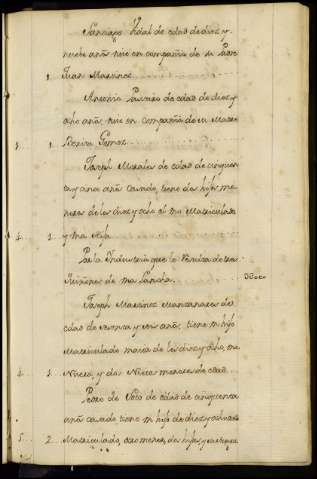 Santiago Vidal de edad de diez y
nuebe años vive en compañia de su Padre
1. Juan Martinez
Antonio de edad de diez y
ocho años vive en compañia de su Madre
3. 1. Gomez
Joseph Morales de edad de cinquenta
y un años casado, tiene dos hijos me
nores de los diez y ocho el uno Matriculado
4. 1. y una hija
Por la Industria que le de sus
de una Lancha
Joseph Martinez Manzanares de
edad de sesenta y seis años: tiene un hijo
Matriculado maior de los diez y ocho, un
4. 1. Nieto, y dos Nietas menores de edad
Pedro de Soto de edad de cinquenta
años casado tiene un hijo de diez y ocho años
5. 2. Matriculado, otro menor, dos hijas y